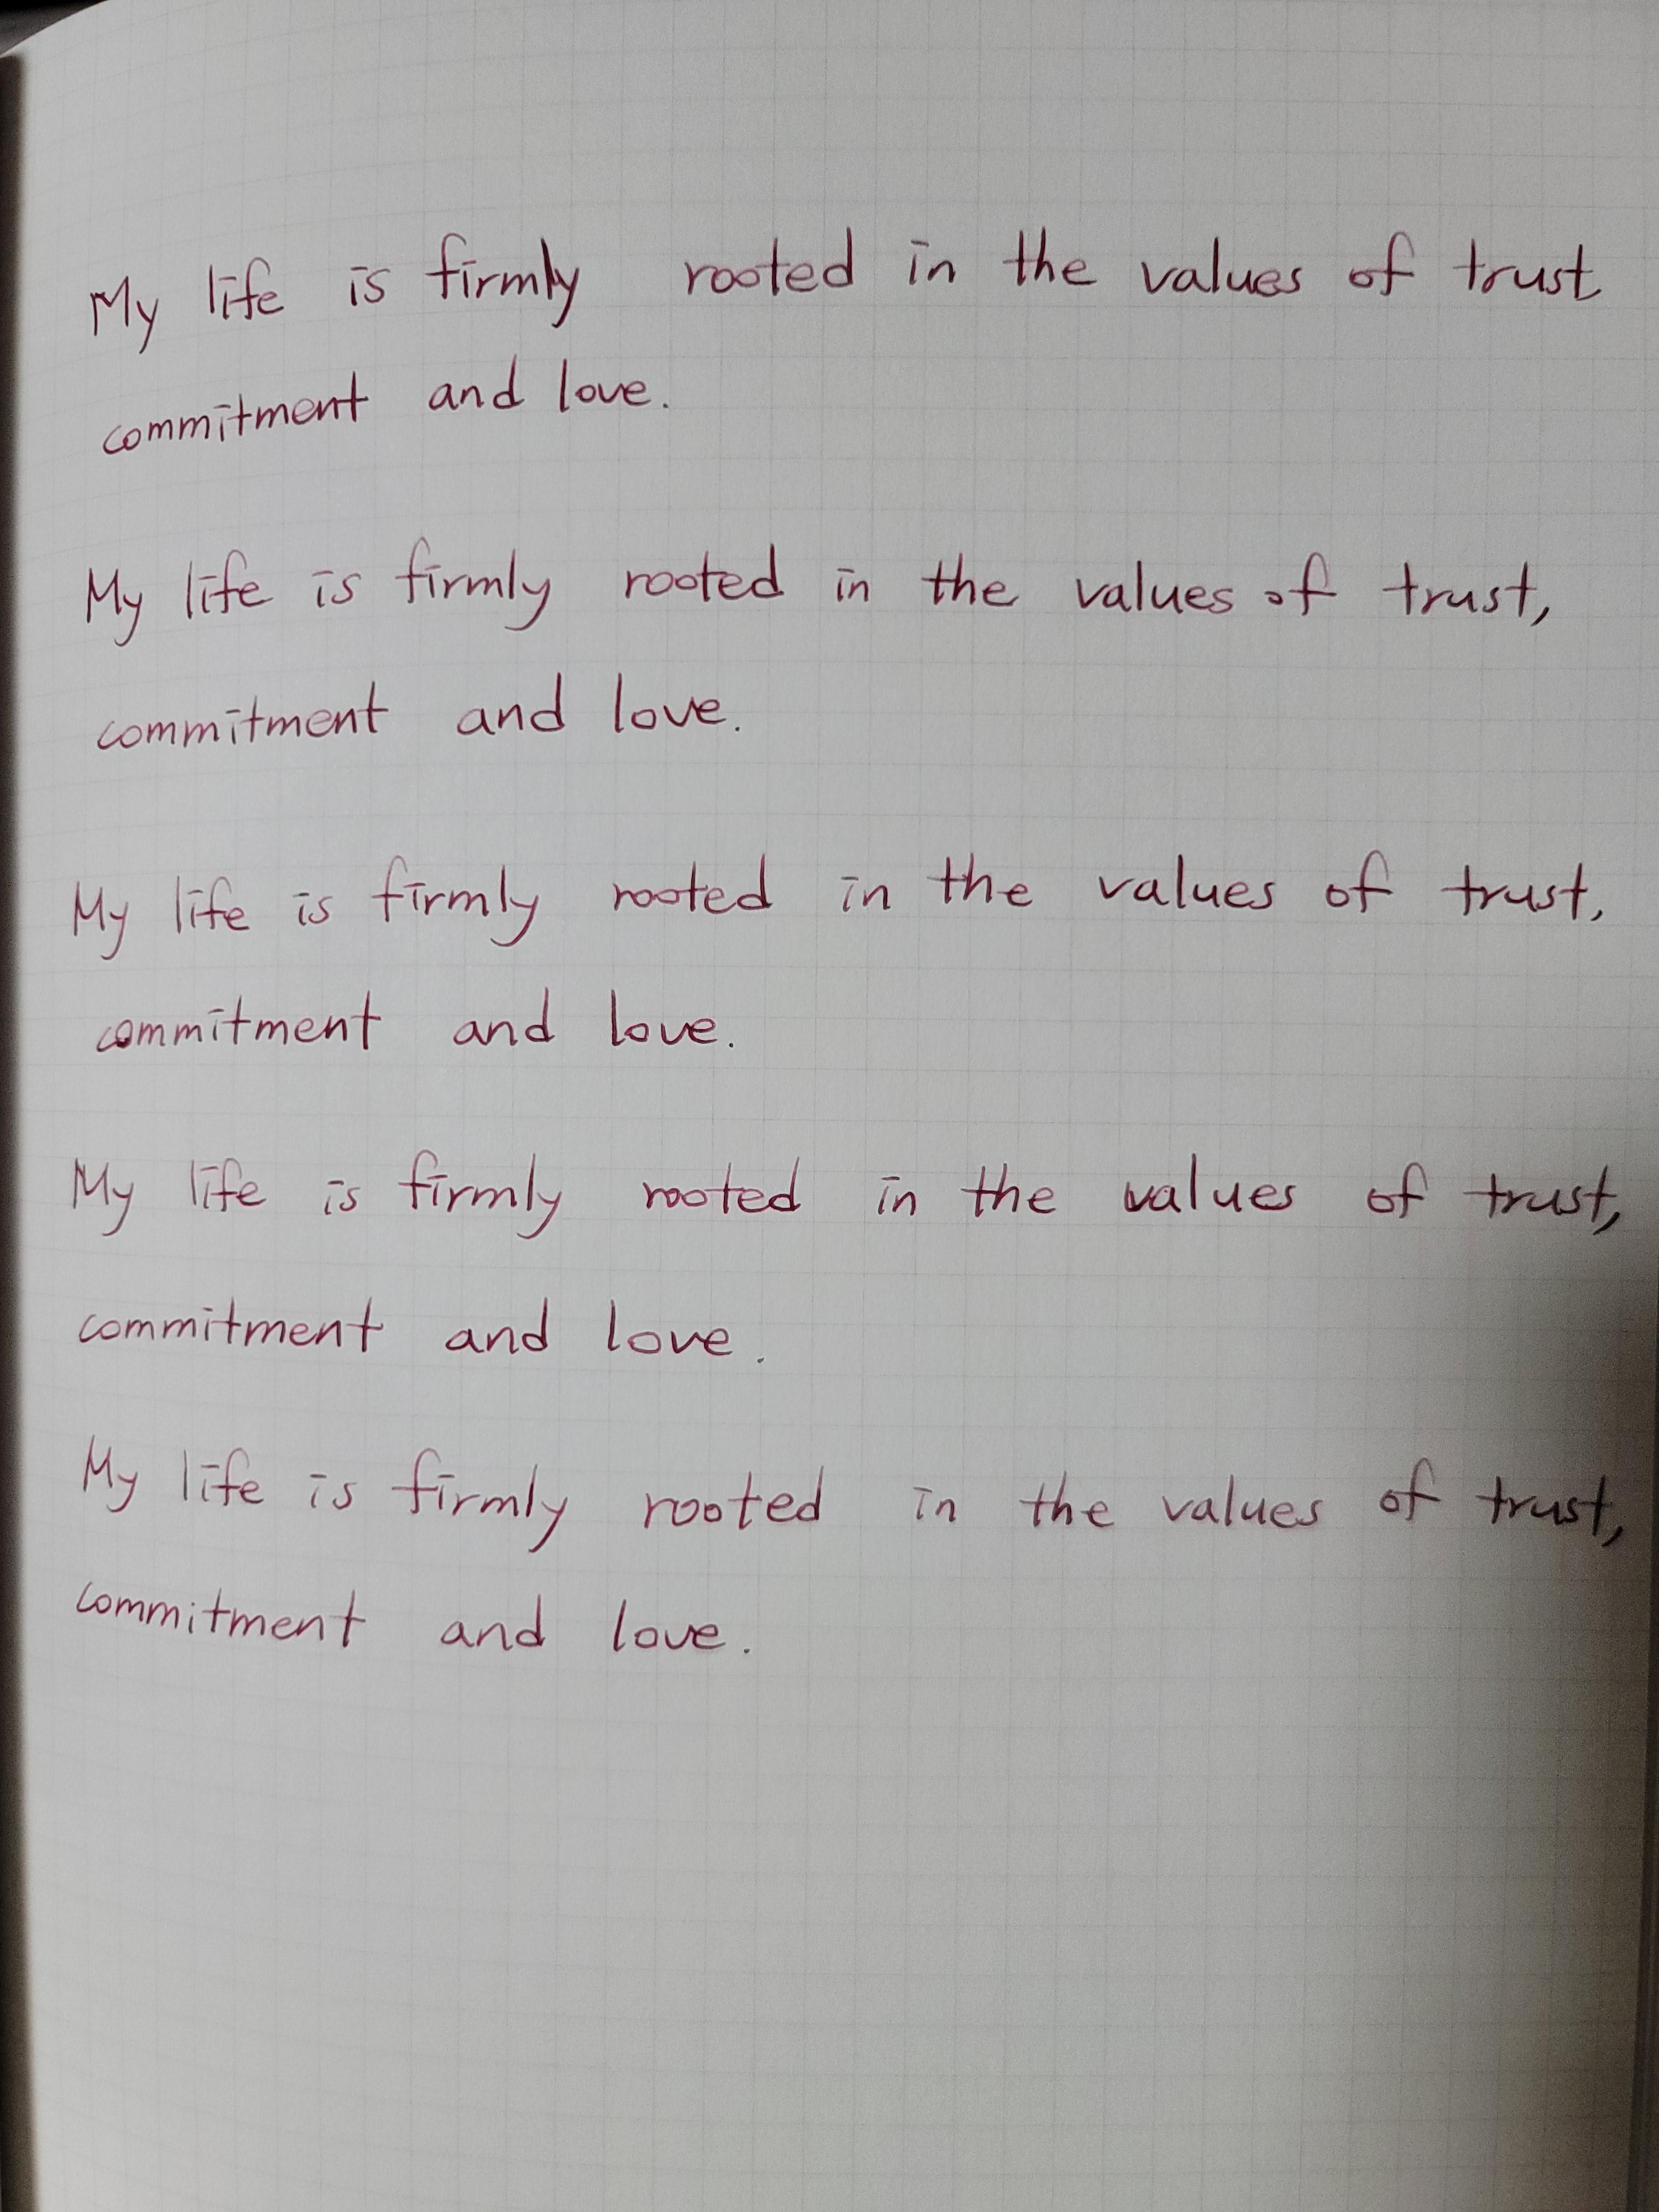 My life is firmly rooted in the values of trust
commitment and love.
My life is firmly rooted in the values of trust,
commitment and love.
My life is firmly rooted in the values of trust,
commitment and love.
My life is firmly rooted in the values of trust,
commitment and love.
My life is firmly rooted in the values of trust,
commitment and love.